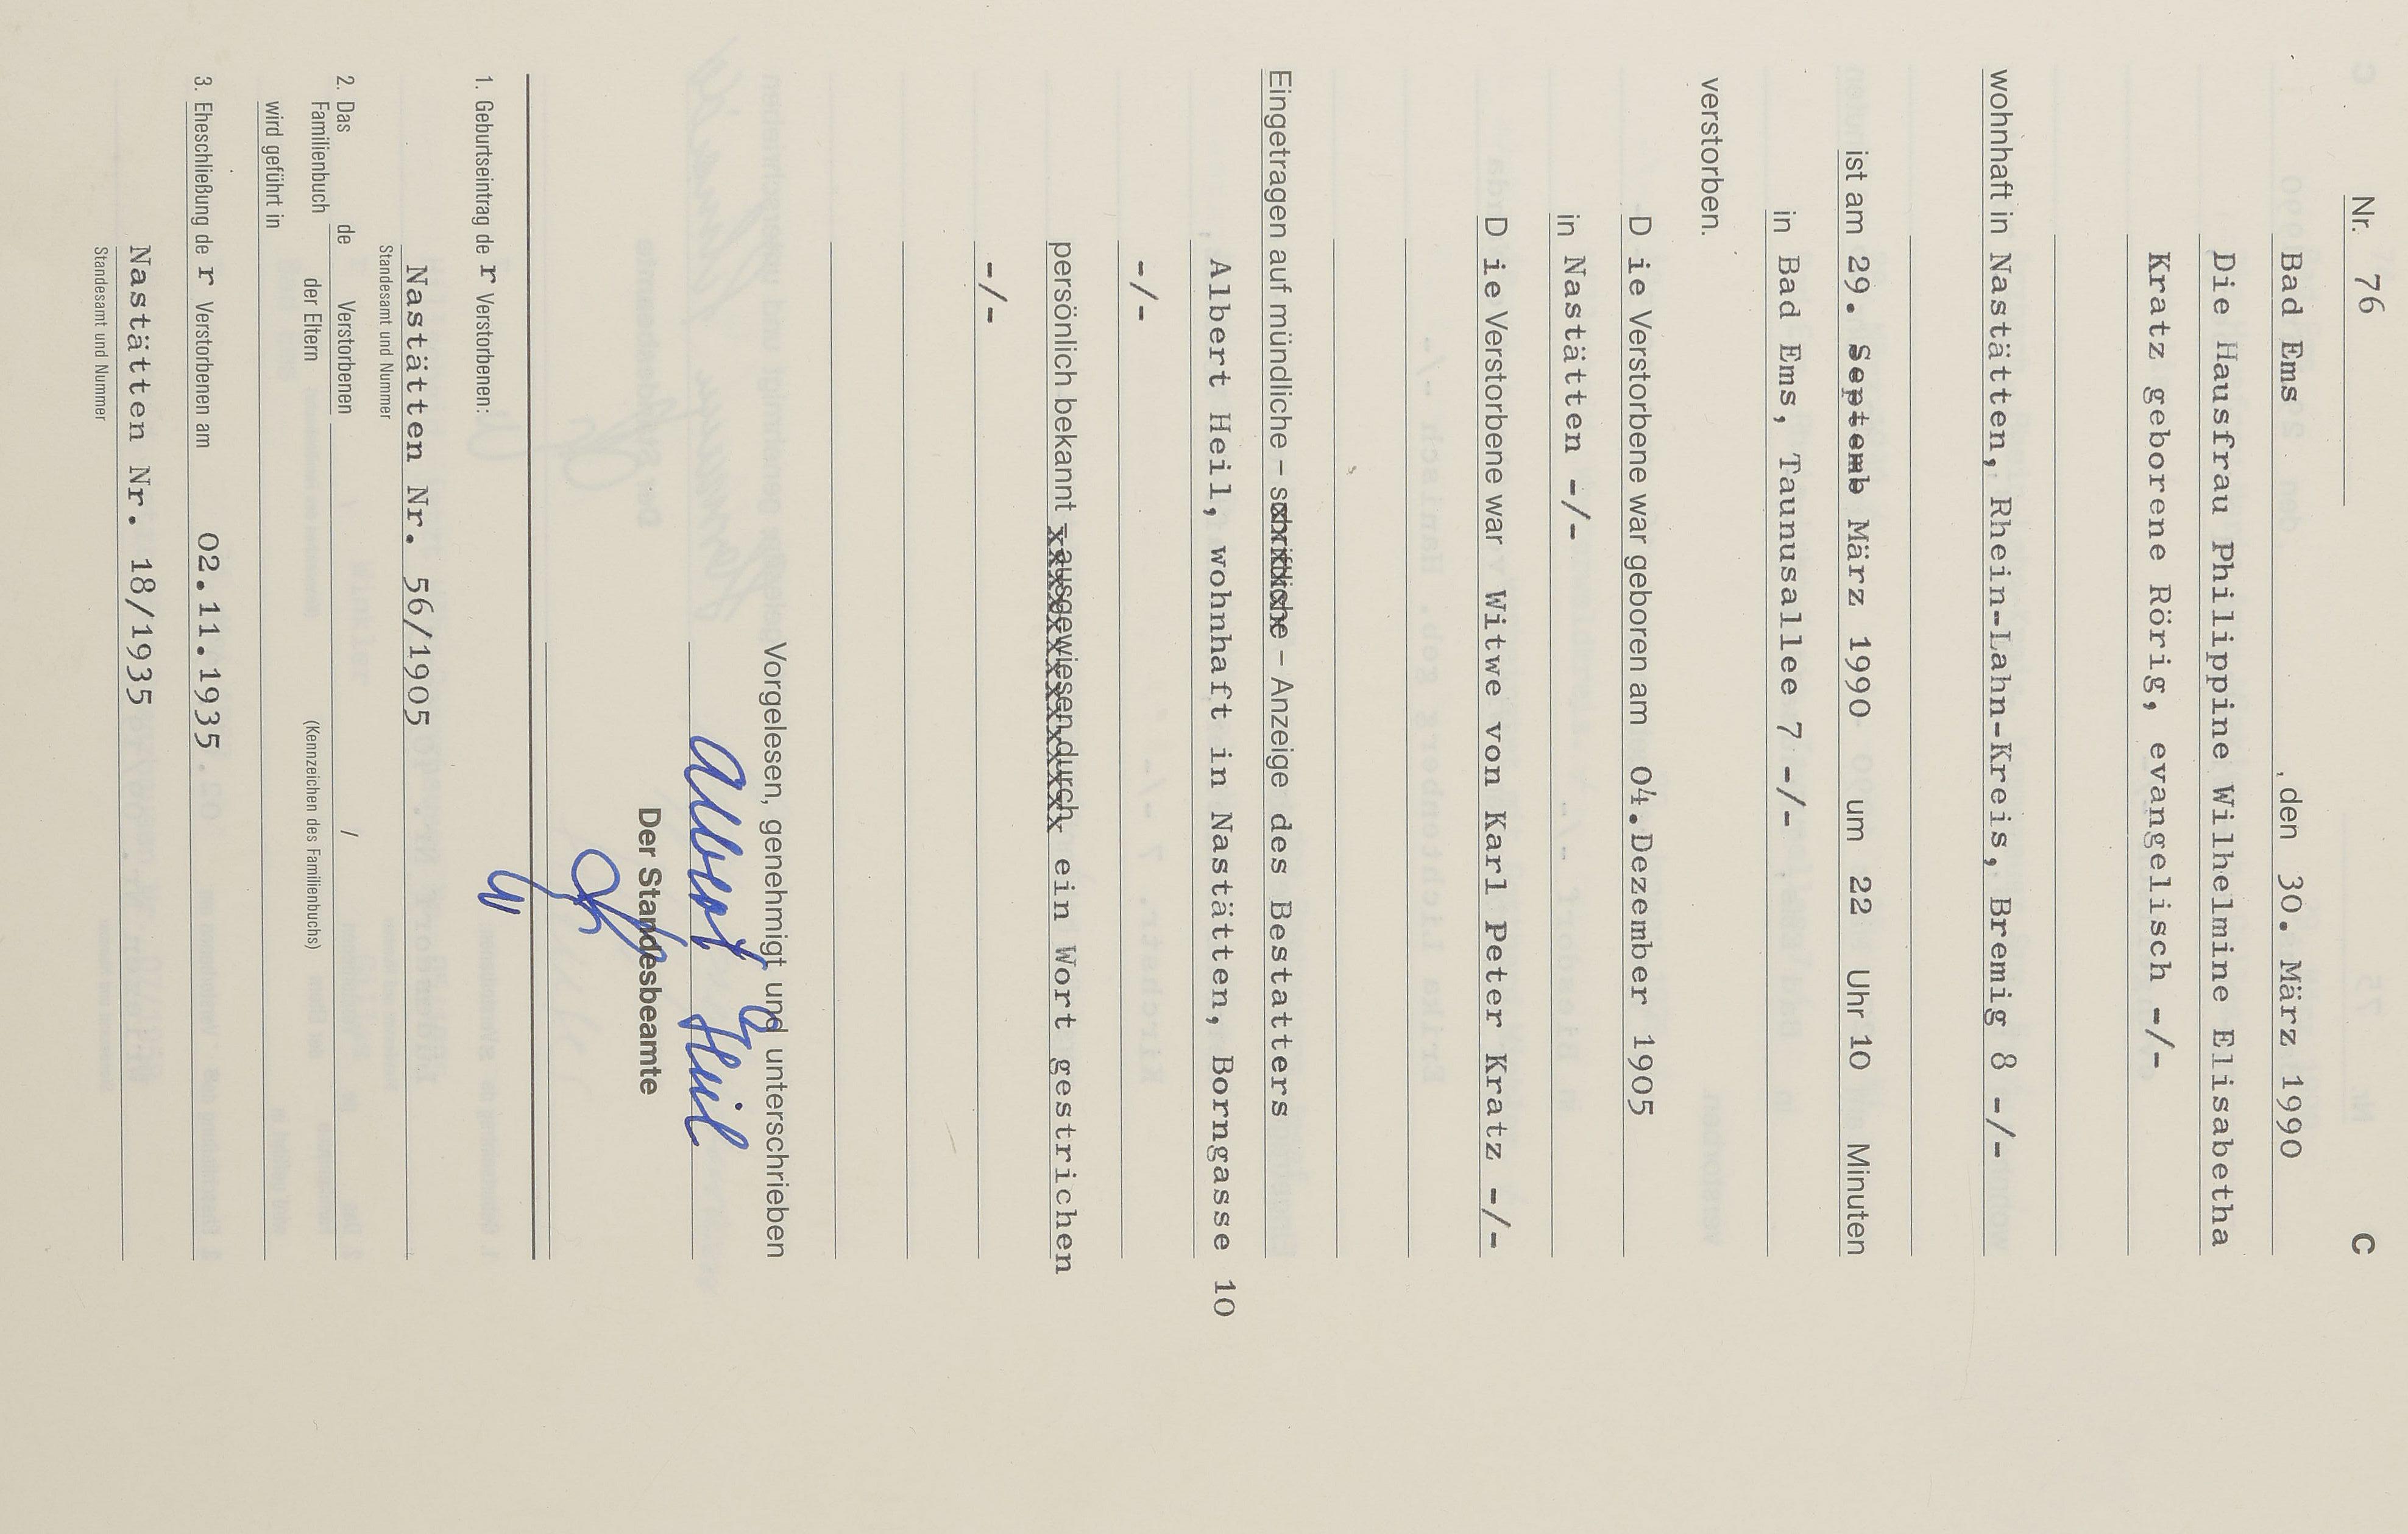 Nr. 76 C
Bad Ems , den 30. März 1990
Die Hausfrau Philippine Wilhelmine Elisabetha
Kratz geborene Rörig, evangelisch -/-
wohnhaft in Nastätten, Rhein-Lahn-Kreis, Bremig 8 -/-
ist am 29. Septemb März 1990 um 22 Uhr 10 Minuten
in Bad Ems, Taunusallee 7 -/-
verstorben.
D ie Verstorbene war geboren am 04.Dezember 1905
in Nastätten -/-
D ie Verstorbene war Witwe von Karl Peter Kratz -/-
Eingetragen auf mündliche – schriftliche – Anzeige des Bestatters
Albert Heil, wohnhaft in Nastätten, Borngasse 10
-/-
persönlich bekannt – ausgewiesen durch ein Wort gestrichen
-/-
Vorgelesen, genehmigt und unterschrieben
Albert Heil
Der Standesbeamte
1. Geburtseintrag de r Verstorbenen:
Nastätten Nr. 56/1905
Standesamt und Nummer
2. Das Familienbuch de Verstorbenen /
der Eltern (Kennzeichen des Familienbuchs)
wird geführt in
3. Eheschließung de r Verstorbenen am 02.11.1935
Nastätten Nr. 18/1935
Standesamt und Nummer